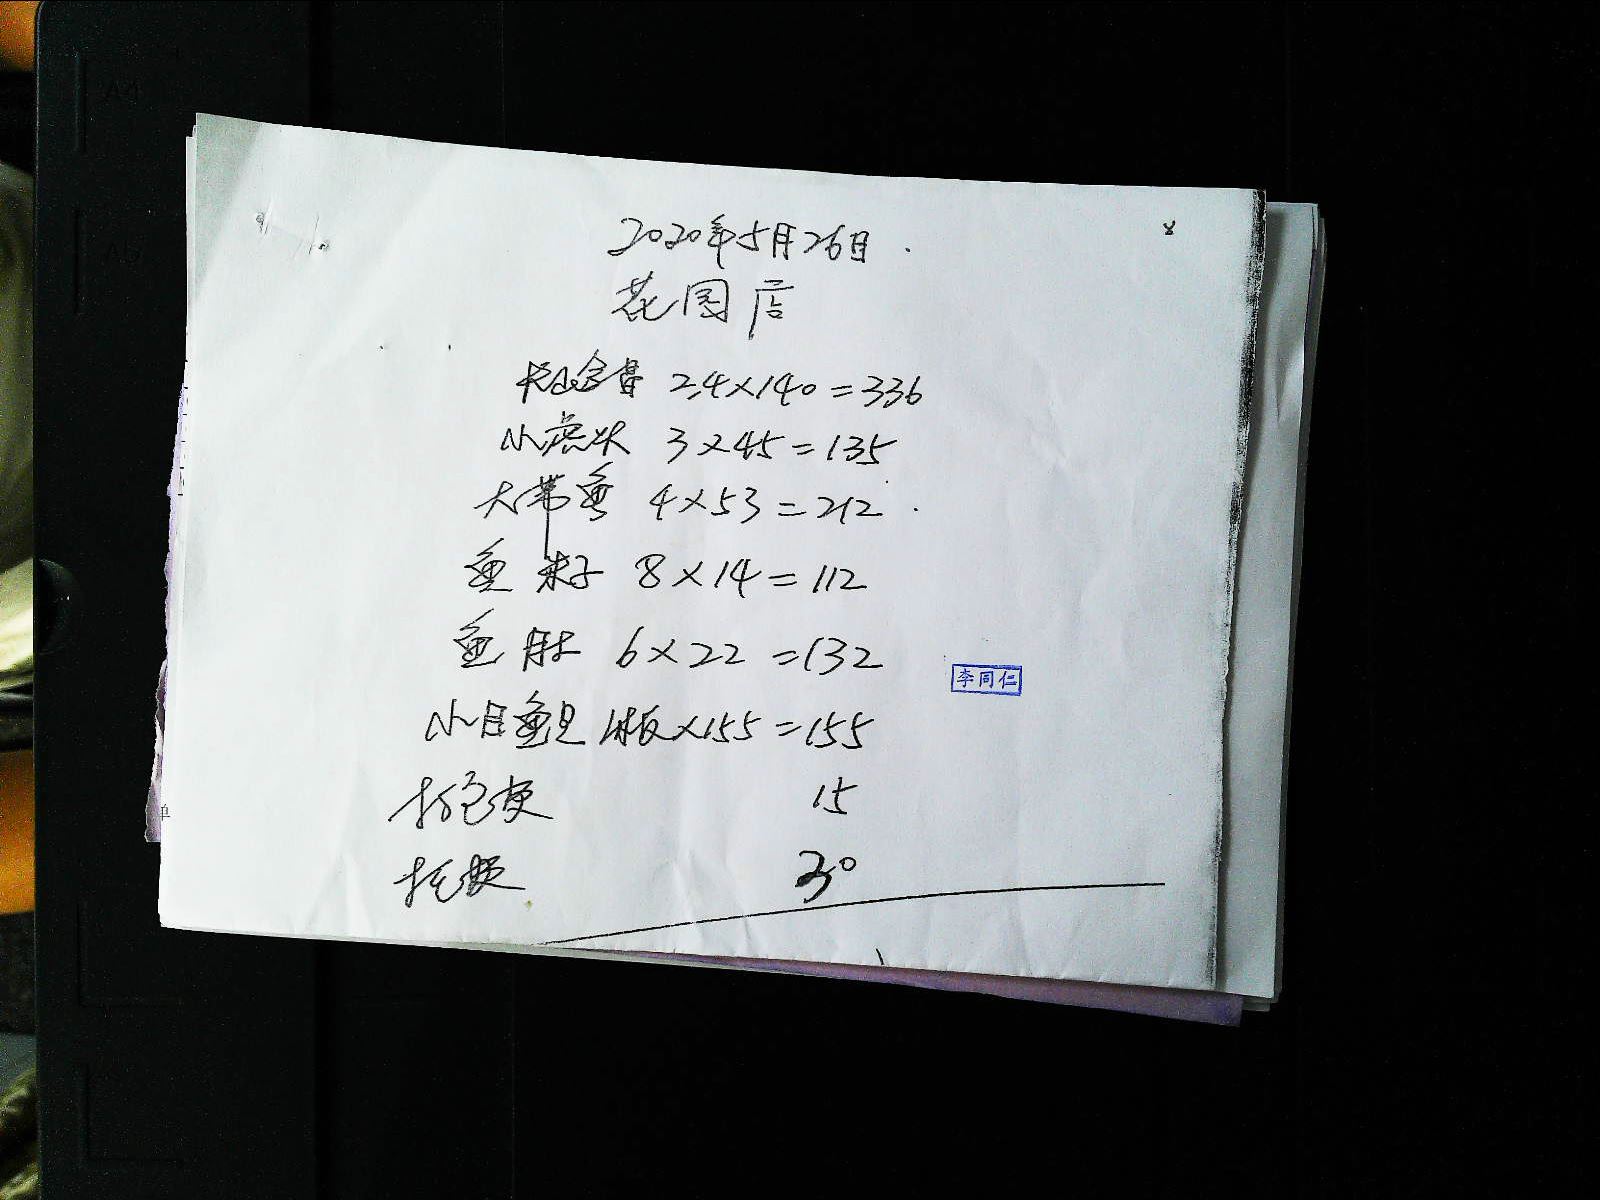 2020年5月26日
花园店
2.4×140=336
小虎头 3×45=135
大带鱼 4×53=212
鱼籽 8×14=112
鱼肚 6×22=132
李同仁
小目鱼 1板×155=155
打包费 15
托费 30